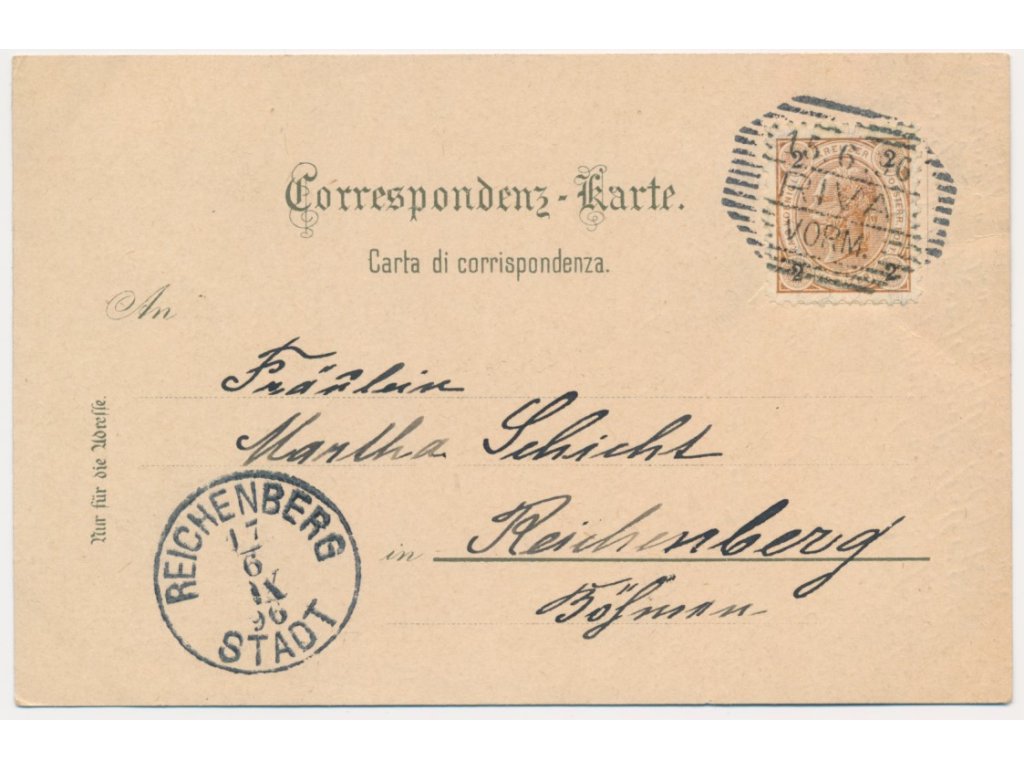 Correspondenz-Karte.
Carta di corrispondenza.
2 2
15 6 96
VORM.
2 2
An
Fräulein
Martha Schicht
in Reichenberg
Böhmen
Nur für die Adresse.
REICHENBERG
17
6
IX
96
STADT